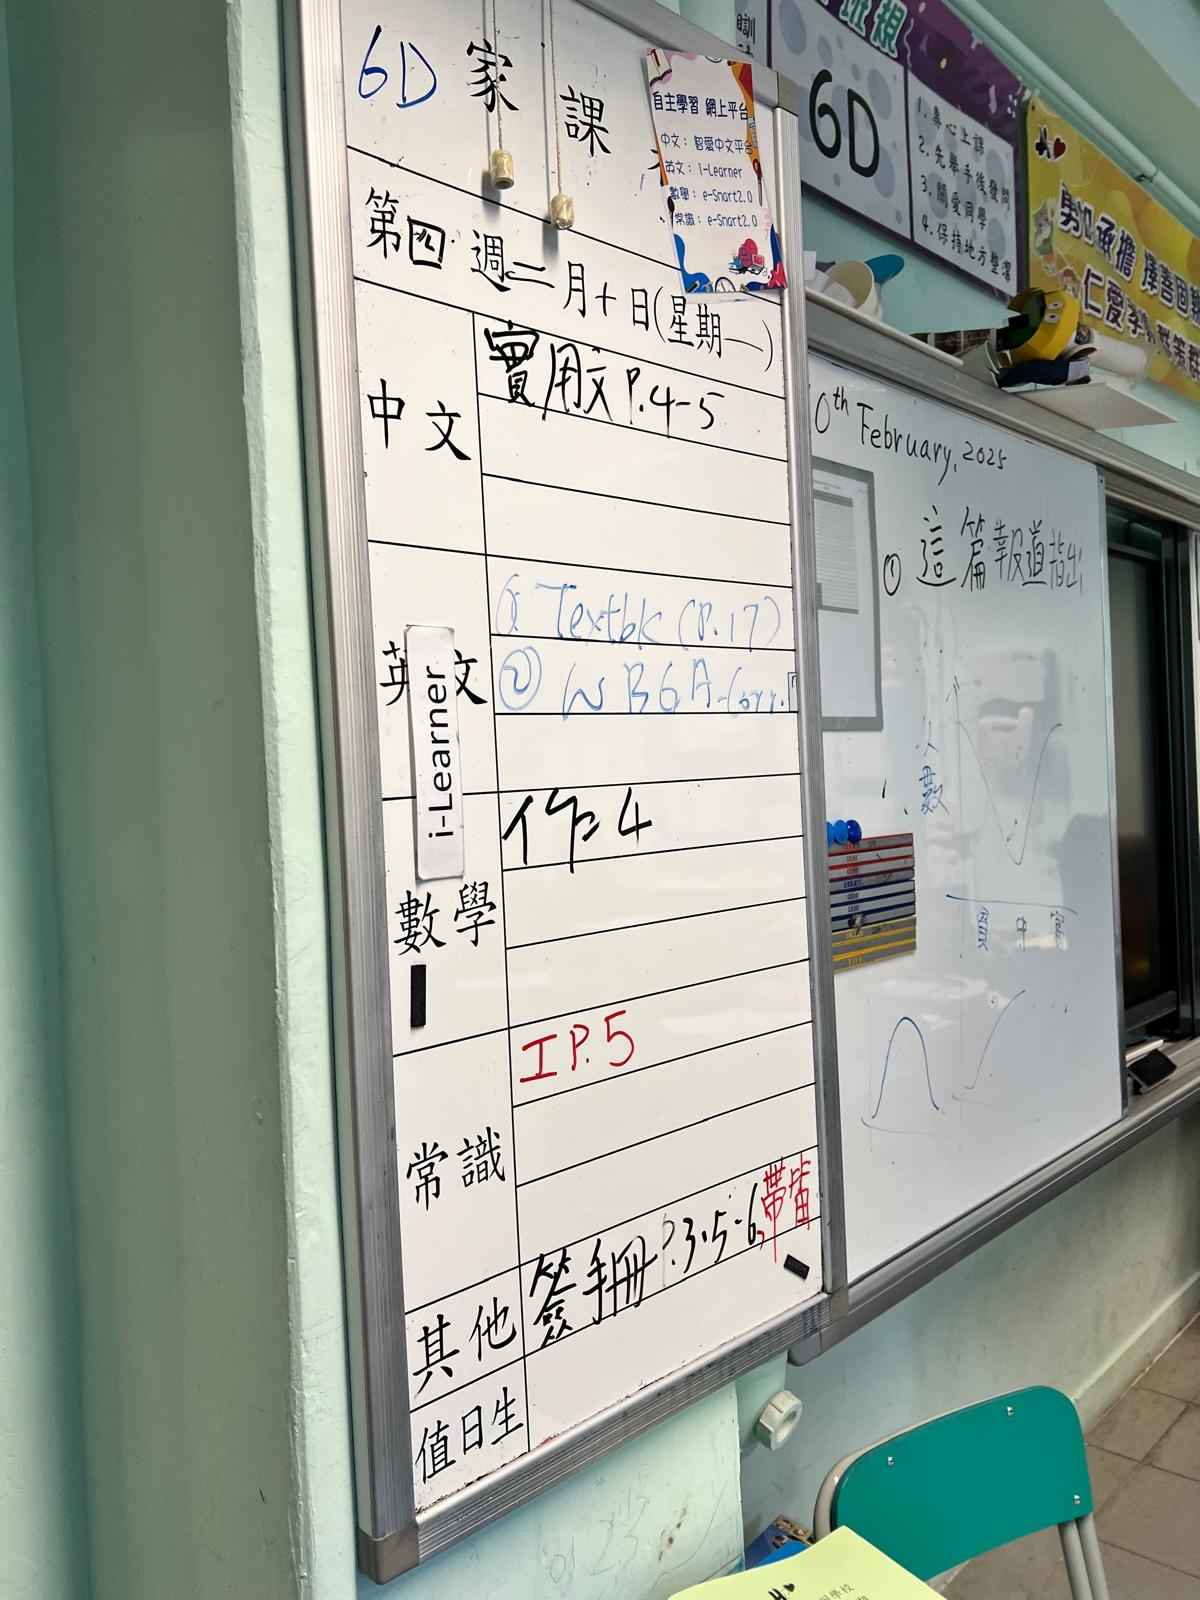 6D 家課
第四週二月十日(星期一)
中文
實用文 P.4-5
英文
i-Learner
① Textbk (P.17)
② WB GA-Corr.
數學
作 4
常識
I P.5
其他
簽手冊 P.3,5-6,
值日生
1
自主學習 網上平台
中文：智愛中文平台
英文：i-Learner
數學：e-Smart2.0
常識：e-Smart2.0
班規
6D
1. 專心上課
2. 先舉手後發問
3. 關愛同學
4. 保持地方整潔
承擔 擇善固
仁愛
0th February, 2025
① 這篇報道指出
人數
貧 中 富